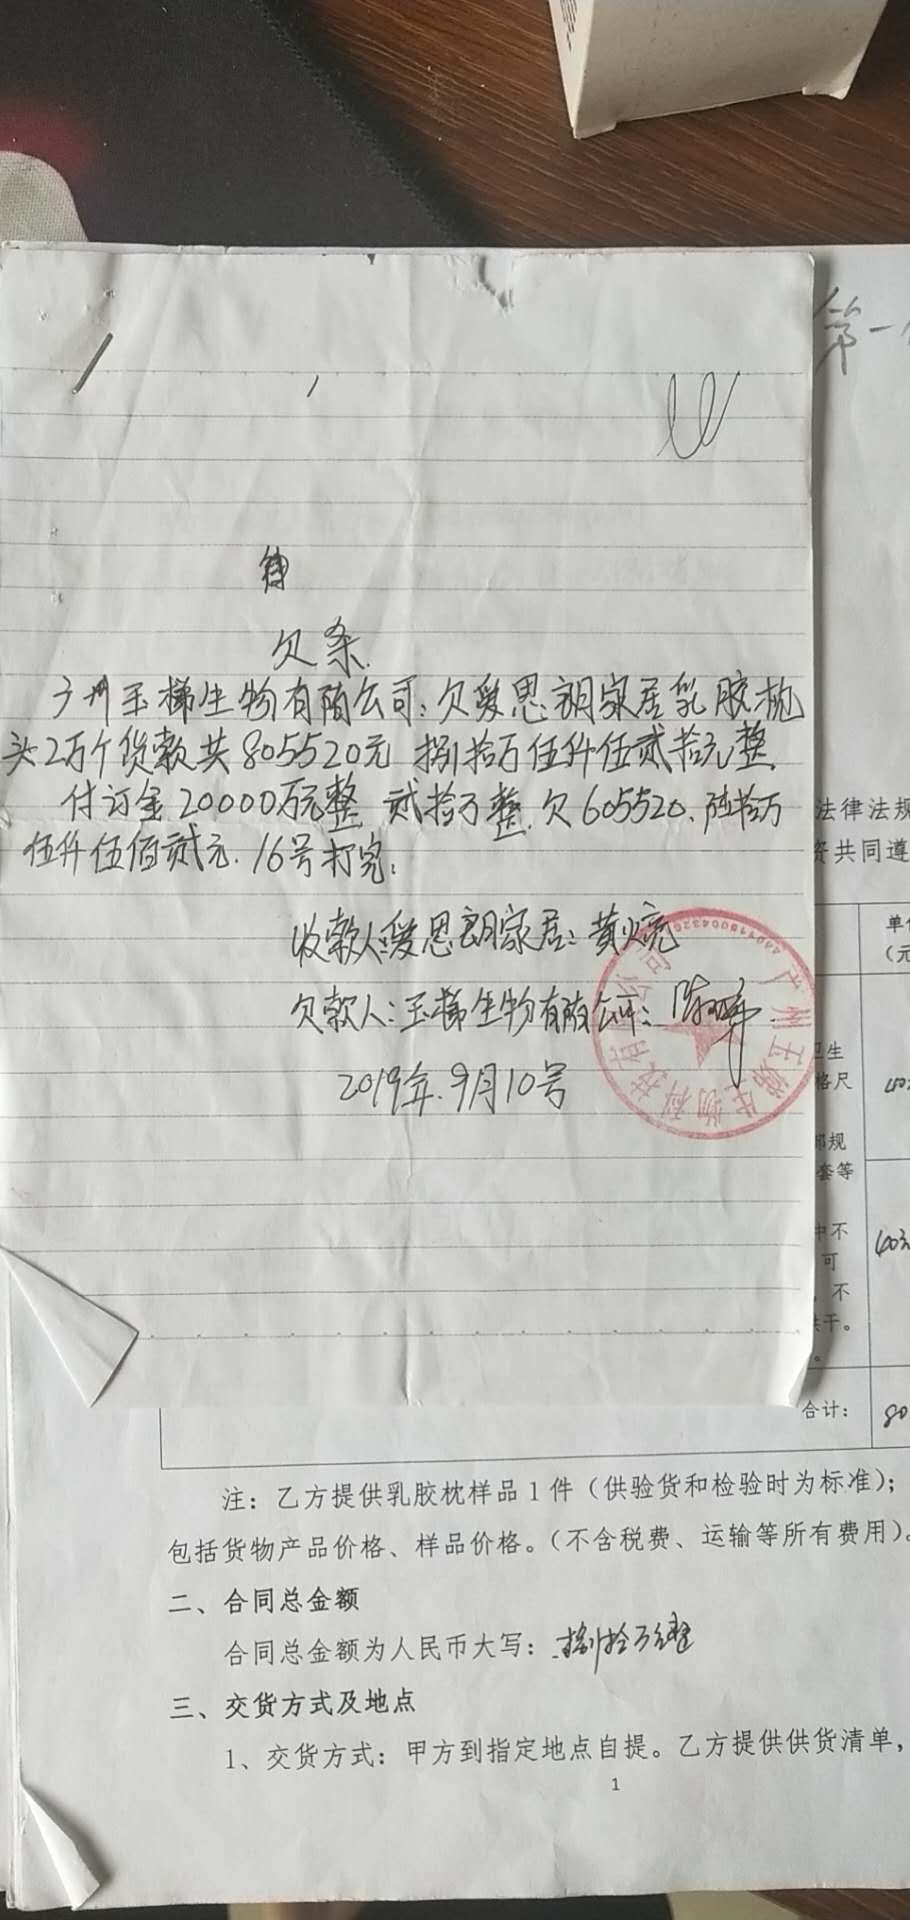 第一
欠条
广州玉梯生物有限公司:欠爱思朗家居乳胶枕
头2万个货款共805520元 捌拾万伍仟伍贰拾元整
付订金20000万元整 贰拾万整.欠605520.陆拾万
伍仟伍佰贰元.16号打完:
收款人:爱思朗家居:黄火亮
欠款人:玉梯生物有限公司:陈
2019年.9月10号
广州玉 生物科技有 公司
法律法规
共同遵
单
(元
卫生
格尺
规
套等
中不
可
不
干。
40元
合计:
80
注:乙方提供乳胶枕样品1件(供验货和检验时为标准);
包括货物产品价格、样品价格。(不含税费、运输等所有费用)。
二、合同总金额
合同总金额为人民币大写:捌拾万元整
三、交货方式及地点
1、交货方式:甲方到指定地点自提。乙方提供供货清单,
1